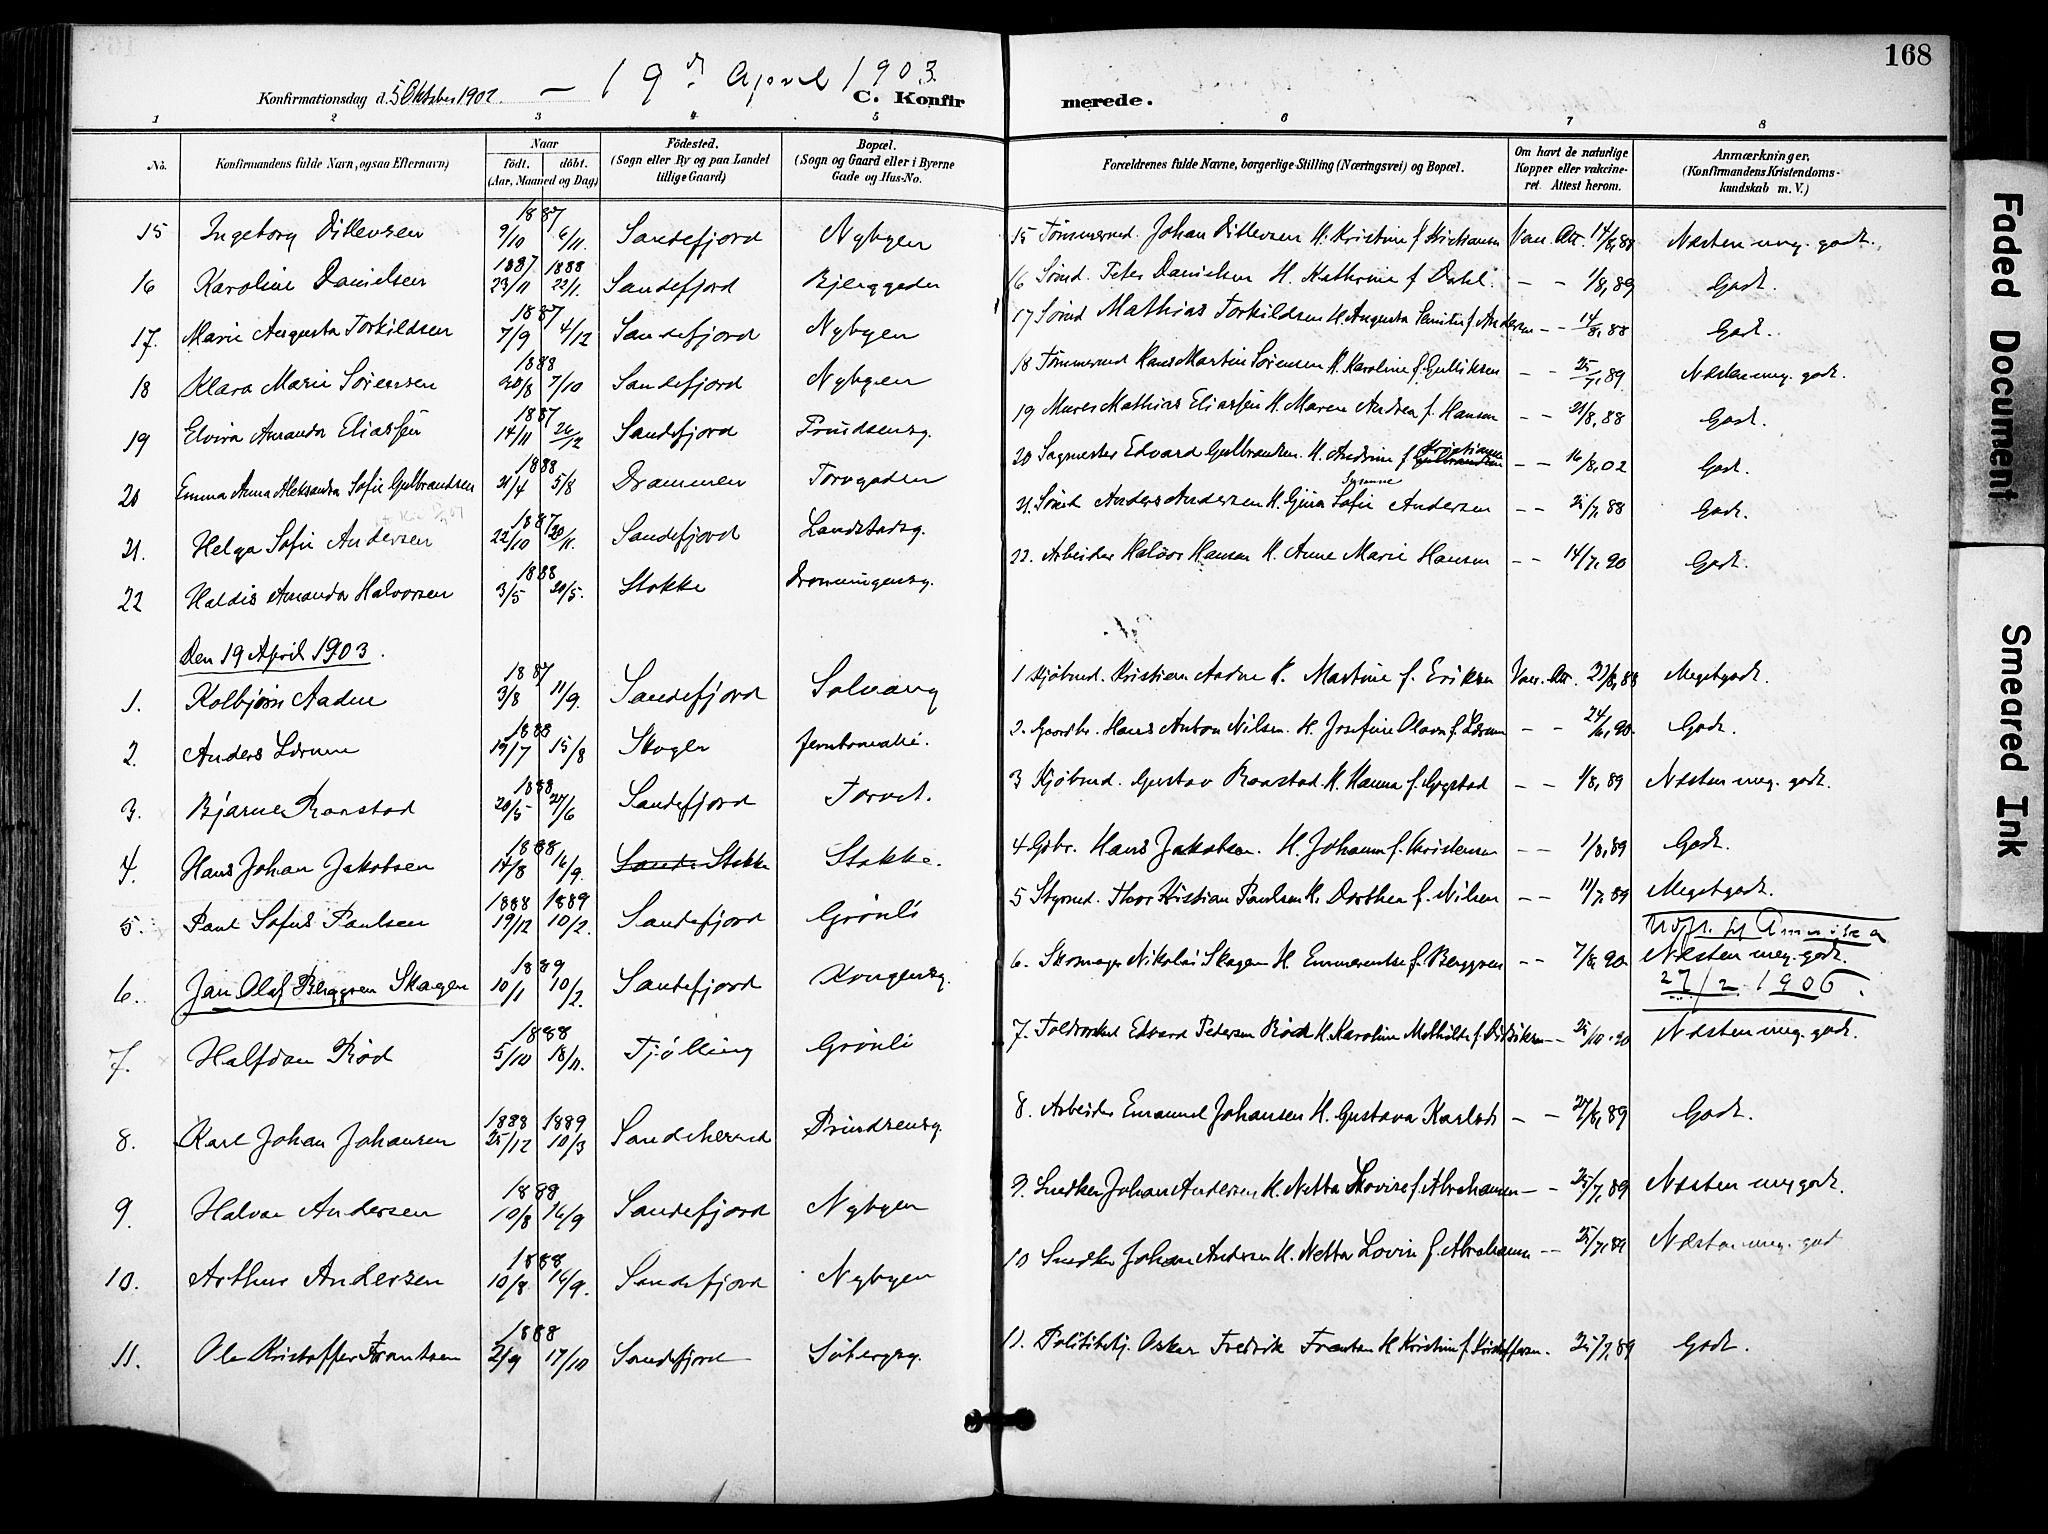 168
Konfirmationsdag d. 5 Oktober 1902. — 19 d April 1903
C. Konfirmerede.
1 2 3 4 5 6 7 8
No.
Konfirmandens fulde Navn, ogsaa Efternavn)
Naar født. døbt. (Aar, Maaned og Dag)
Födested. (Sogn eller By og paa Landet tillige Gaard)
Bopæl. (Sogn og Gaard eller i Byerne Gade og Hus-No.
Forældrenes fulde Navne, borgerlige Stilling (Næringsvei) og Bopæl.
Om havt de naturlige Kopper eller vakcineret. Attest herom.
Anmærkninger, (Konfirmandens Kristendomskundskab m. V.)
15 Ingeborg Ditlevsen 1887 9/10 6/11. Sandefjord Nybyen 15 Tømmermd. Johan Ditlevsen H. Kristine f. Kristiansen Vac. Att. 14/8, 88 Næsten meg. godt.
16 Karoline Danielsen 1887 23/11 1888 22/1. Sandefjord Bjerggaden 16 Sømd. Peter Danielsen H. Kathrine f Dahl. – – 1/8, 89 Godt.
17. Marie Augusta Torkildsen 1887 7/9 4/12 Sandefjord Nybyen 17 Sømd Mathias Torkildsen H. Augusta f. Andersen – – 14/8, 88 Godt.
18 Klara Marie Sørensen 1888 20/8 7/10 Sandefjord Nybyen 18 Tømmermd Hans Martin Sørensen H. Karoline f. Gulliksen – – 25/7, 89 Næsten meg. godt.
19 Elvira Amanda Eliassen 1887 14/11 26/12 Sandefjord Prindsensg. 19 Murer Mathias Eliassen H. Maren Andrea f. Hansen – – 21/8, 88 Godt.
20 Emma Anna Aleksandra Sofie Gulbrandsen 1888 21/4 5/8 Drammen Torvgaden 20 Sagmester Edvard Gulbrandsen. H. Andrine f Kristiansen – – 16/8, 02 Godt.
21. Helga Sofie Andersen 1887 22/10 20/11. Sandefjord Landstadsg. 21. Sømd Anders Andersen H. Gina Sofie Andersen – – 25/7, 88 Godt.
22 Haldis Amanda Halvorsen 1888 3/5 20/5. Stokke Dronningensg. 22. Arbeider Halvor Hansen H. Anne Marie Hansen – – 14/7, 90 Godt.
Den 19 April 1903.
1. Kolbjørn Aadne 1887 3/8 11/9. Sandefjord Solvang 1 Kjøbmd. Kristian Aadne H. Martine f. Eriksen Vac. Att. 27/8, 88 Meget godt.
2. Anders Lorum 1888 19/7 15/8 Skoger Jernbanealle. 2. Gaardbr. Hans Anton Nilsen. H. Josefine Olava f. Lorum – – 24/6, 90. Godt.
3. Bjarne Raastad 1888 20/5 27/6 Sandefjord Torvet. 3 Kjøbmd. Gustav Raastad H. Hanna f. Gogstad – – 1/8, 89 Næsten meg. godt.
4. Hans Johan Jakobsen 1888 14/8 16/9. Stokke Stokke. 4 Gbr. Hans Jakobsen. H. Johanne f. Kristensen – – 1/8, 89 Godt.
5. Paul Sofus Paulsen 1888 19/12 1889 10/2. Sandefjord Grønli 5 Styrmd. Thor Kristian Paulsen H. Dorthea f. Nilsen – – 11/7, 89 Meget godt.
Udfl. til Amerika
6. Jan Olaf Berggren Skagen 1889 10/1 10/2. Sandefjord Kongensg. 6. Skomager Nikolai Skagen H. Emmerentse f. Berggren – – 7/8, 90 Næsten meg. godt.
27/2 1906.
7. Halfdan Rød 1888 5/10 18/11. Tjølling Grønli 7. Toldvorbet Edvard Petersen Rød H. Karoline Mathilde f. Didriksen – – 25/10. 90 Næsten meg. godt.
8. Karl Johan Johansen 1888 25/12 1889 10/3 Sandeherred Prindsensg. 8. Arbeider Emanuel Johansen H. Gustava Karlsd. – – 27/8, 89 Godt.
9. Halvar Andersen 1888 10/8 16/9 Sandefjord Nybyen 9. Snedker Johan Andersen H. Netta Lovise f. Abrahamsen – – 25/7, 89 Næsten meg godt.
10. Arthur Andersen 1888 10/8. 16/9. Sandefjord Nybyen 10 Snedker Johan Andersen H. Netta Lovise f. Abrahamsen – – 25/7, 89 Næsten meg. godt
11. Ole Kristoffer Frantsen 1888 2/9 17/10 Sandefjord Søbergsg. 11. Politibetj. Oskar Fredrik Frantsen H Kristine f. Kristoffersen. – 25/7, 89 Godt.
Faded Document
Smeared Ink